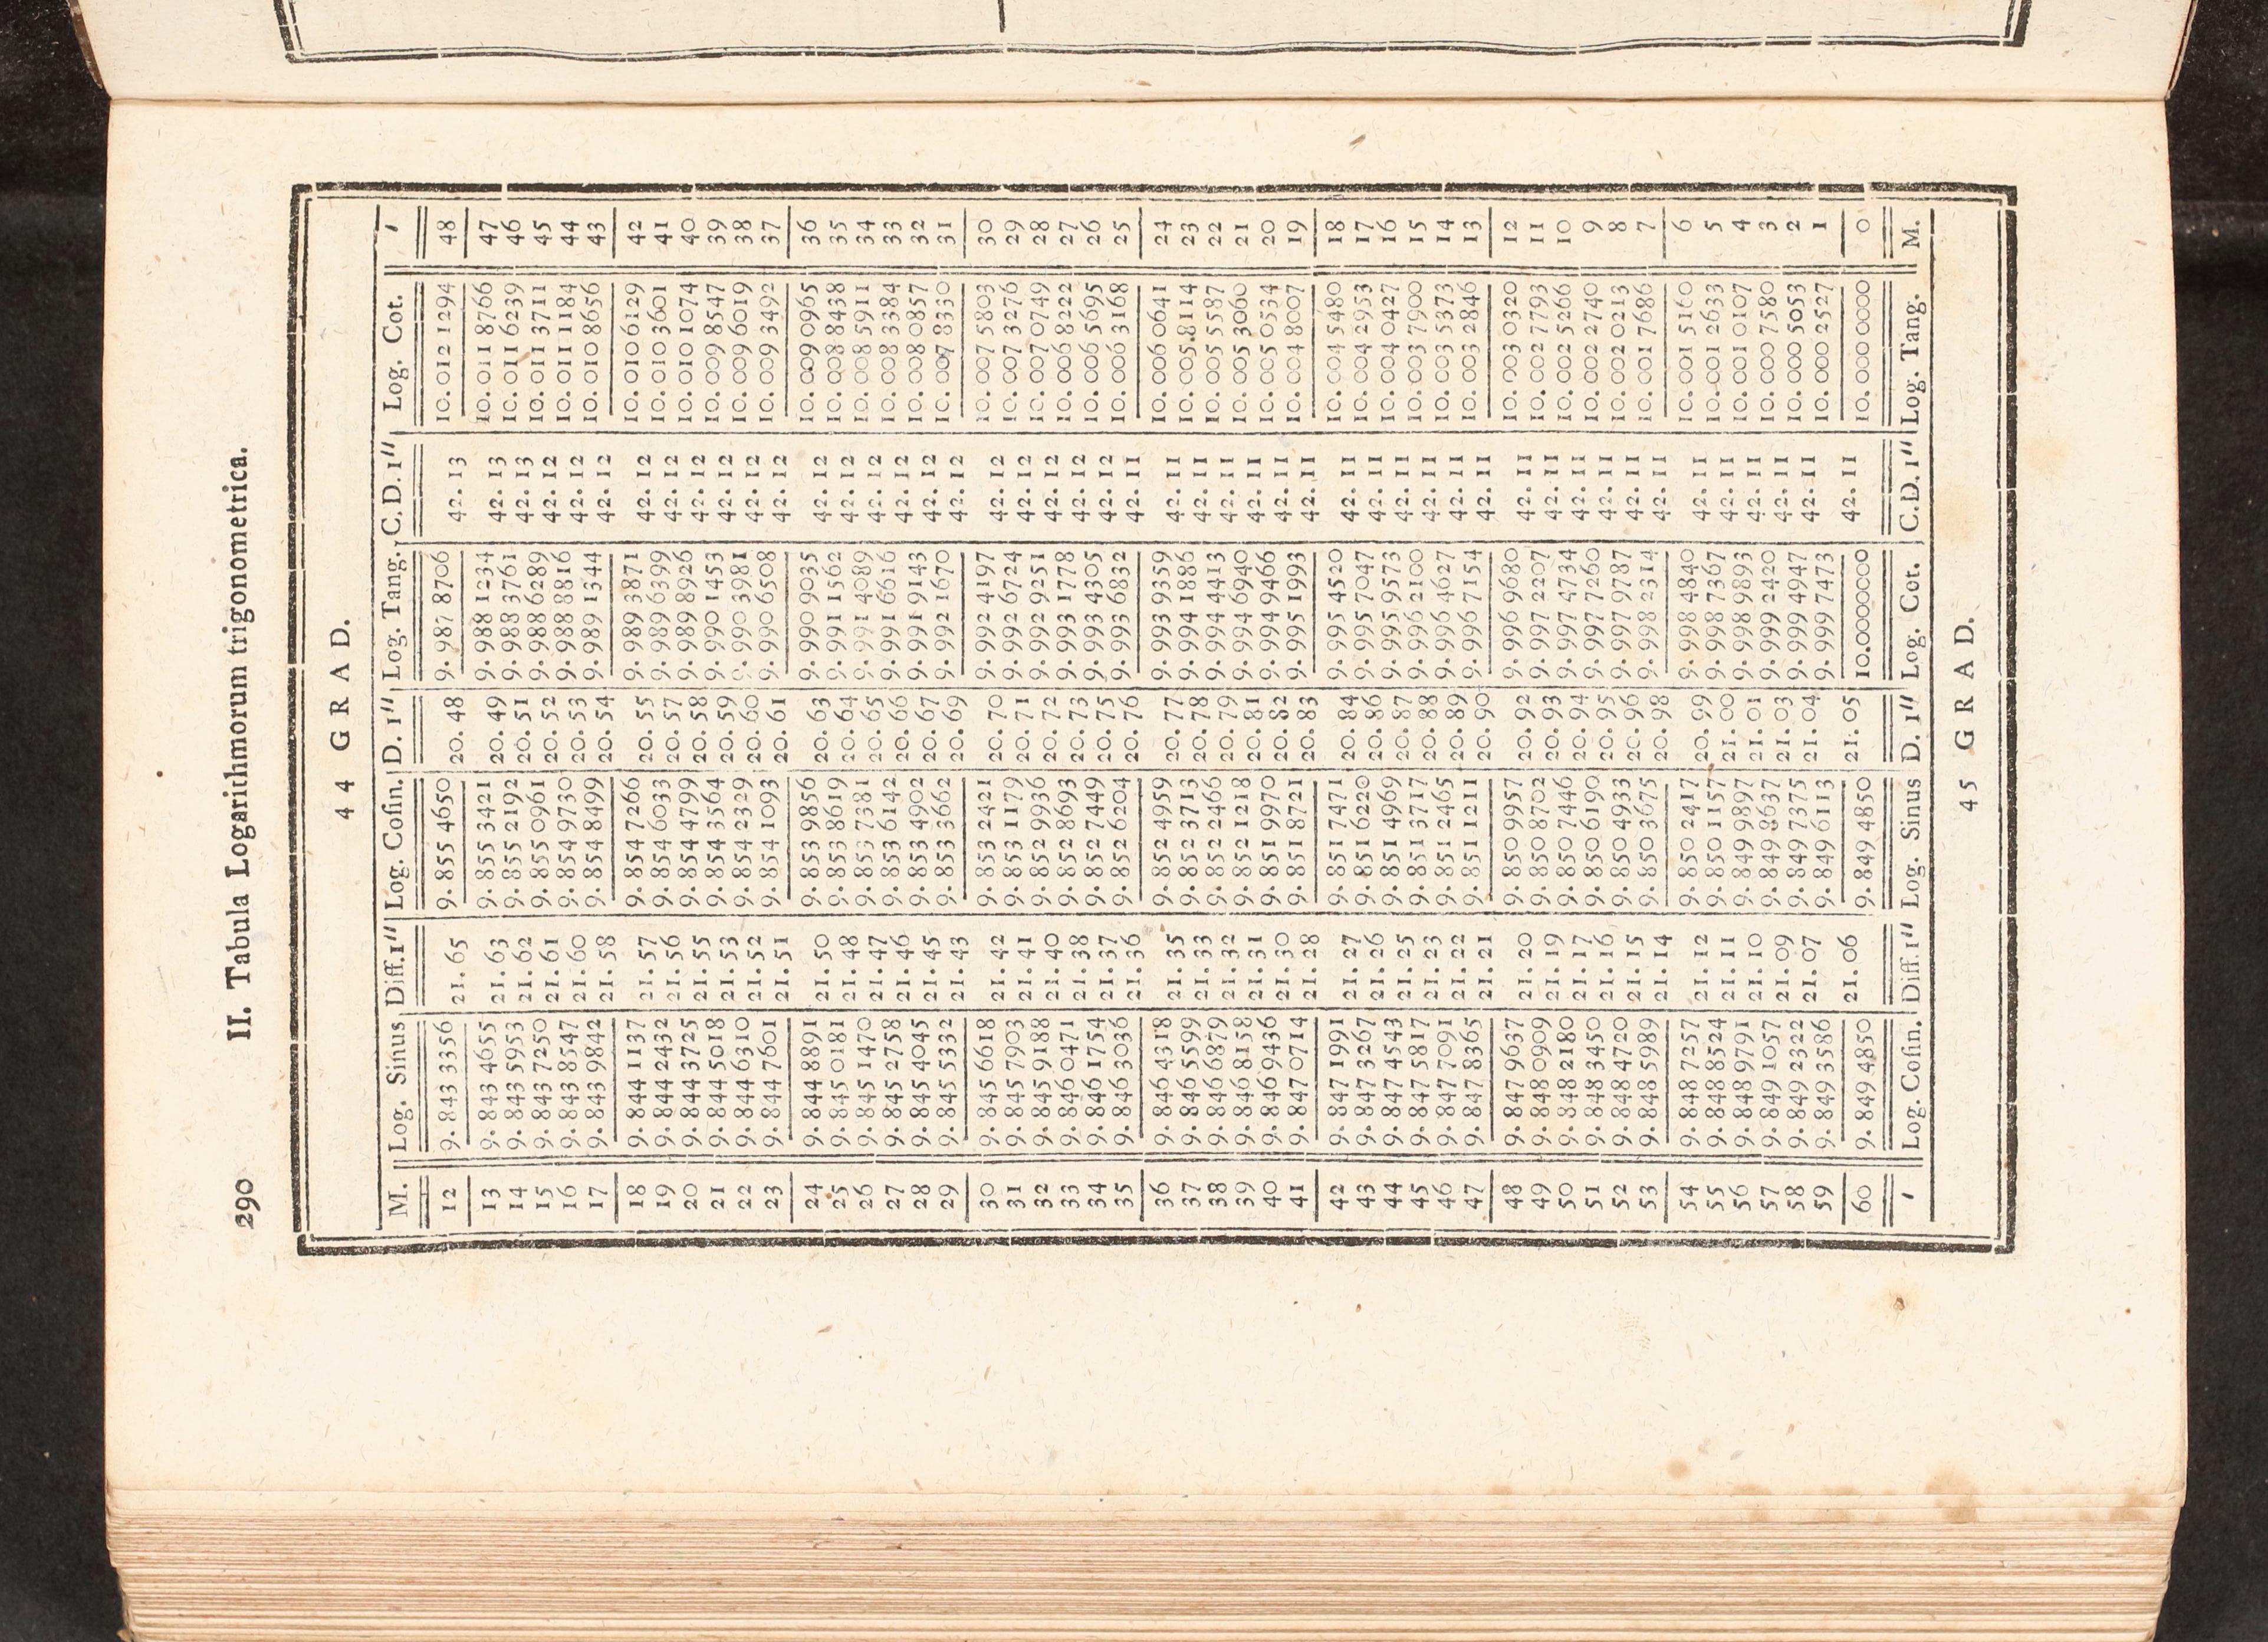 290 II. Tabula Logarithmorum trigonometrica.
44 GRAD.
M. Log. Sinus Diff.1″ Log. Coſin. D. 1″ Log. Tang. C.D.1″ Log. Cot. ′
12 9.843 3356 21.65 9.855 4650 20.48 9.987 8706 42.13 10.012 1294 48
13 9.843 4655 21.63 9.855 3421 20.49 9.988 1234 42.13 10.011 8766 47
14 9.843 5953 21.62 9.855 2192 20.51 9.988 3761 42.13 10.011 6239 46
15 9.843 7250 21.61 9.855 0961 20.52 9.988 6289 42.12 10.011 3711 45
16 9.843 8547 21.60 9.854 9730 20.53 9.988 8816 42.12 10.011 1184 44
17 9.843 9842 21.58 9.854 8499 20.54 9.989 1344 42.12 10.010 8656 43
18 9.844 1137 21.57 9.854 7266 20.55 9.989 3871 42.12 10.010 6129 42
19 9.844 2432 21.56 9.854 6033 20.57 9.989 6399 42.12 10.010 3601 41
20 9.844 3725 21.55 9.854 4799 20.58 9.989 8926 42.12 10.010 1074 40
21 9.844 5018 21.53 9.854 3564 20.59 9.990 1453 42.12 10.009 8547 39
22 9.844 6310 21.52 9.854 2329 20.60 9.990 3981 42.12 10.009 6019 38
23 9.844 7601 21.51 9.854 1093 20.61 9.990 6508 42.12 10.009 3492 37
24 9.844 8891 21.50 9.853 9856 20.63 9.990 9035 42.12 10.009 0965 36
25 9.845 0181 21.48 9.853 8619 20.64 9.991 1562 42.12 10.008 8438 35
26 9.845 1470 21.47 9.853 7381 20.65 9.991 4089 42.12 10.008 5911 34
27 9.845 2758 21.46 9.853 6142 20.66 9.991 6616 42.12 10.008 3384 33
28 9.845 4045 21.45 9.853 4902 20.67 9.991 9143 42.12 10.008 0857 32
29 9.845 5332 21.43 9.853 3662 20.69 9.992 1670 42.12 10.007 8330 31
30 9.845 6618 21.42 9.853 2421 20.70 9.992 4197 42.12 10.007 5803 30
31 9.845 7903 21.41 9.853 1179 20.71 9.992 6724 42.12 10.007 3276 29
32 9.845 9188 21.40 9.852 9936 20.72 9.992 9251 42.12 10.007 0749 28
33 9.846 0471 21.38 9.852 8693 20.73 9.993 1778 42.12 10.006 8222 27
34 9.846 1754 21.37 9.852 7449 20.75 9.993 4305 42.12 10.006 5695 26
35 9.846 3036 21.36 9.852 6204 20.76 9.993 6832 42.11 10.006 3168 25
36 9.846 4318 21.35 9.852 4959 20.77 9.993 9359 42.11 10.006 0641 24
37 9.846 5599 21.33 9.852 3713 20.78 9.994 1886 42.11 10.005.8114 23
38 9.846 6879 21.32 9.852 2466 20.79 9.994 4413 42.11 10.005 5587 22
39 9.846 8158 21.31 9.852 1218 20.81 9.994 6940 42.11 10.005 3060 21
40 9.846 9436 21.30 9.851 9970 20.82 9.994 9466 42.11 10.005 0534 20
41 9.847 0714 21.28 9.851 8721 20.83 9.995 1993 42.11 10.004 8007 19
42 9.847 1991 21.27 9.851 7471 20.84 9.995 4520 42.11 10.004 5480 18
43 9.847 3267 21.26 9.851 6220 20.86 9.995 7047 42.11 10.004 2953 17
44 9.847 4543 21.25 9.851 4969 20.87 9.995 9573 42.11 10.004 0427 16
45 9.847 5817 21.23 9.851 3717 20.88 9.996 2100 42.11 10.003 7900 15
46 9.847 7091 21.22 9.851 2465 20.89 9.996 4627 42.11 10.003 5373 14
47 9.847 8365 21.21 9.851 1211 20.90 9.996 7154 42.11 10.003 2846 13
48 9.847 9637 21.20 9.850 9957 20.92 9.996 9680 42.11 10.003 0320 12
49 9.848 0909 21.19 9.850 8702 20.93 9.997 2207 42.11 10.002 7793 11
50 9.848 2180 21.17 9.850 7446 20.94 9.997 4734 42.11 10.002 5266 10
51 9.848 3450 21.16 9.850 6190 20.95 9.997 7260 42.11 10.002 2740 9
52 9.848 4720 21.15 9.850 4933 20.96 9.997 9787 42.11 10.002 0213 8
53 9.848 5989 21.14 9.850 3675 20.98 9.998 2314 42.11 10.001 7686 7
54 9.848 7257 21.12 9.850 2417 20.99 9.998 4840 42.11 10.001 5160 6
55 9.848 8524 21.11 9.850 1157 21.00 9.998 7367 42.11 10.001 2633 5
56 9.848 9791 21.10 9.849 9897 21.01 9.998 9893 42.11 10.001 0107 4
57 9.849 1057 21.09 9.849 8637 21.03 9.999 2420 42.11 10.000 7580 3
58 9.849 2322 21.07 9.849 7375 21.04 9.999 4947 42.11 10.000 5053 2
59 9.849 3586 9.849 6113 9.999 7473 10.000 2527 1
60 9.849 4850 21.06 9.849 4850 21.05 10.0000000 42.11 10.000 0000 0
′ Log. Coſin. Diff.1″ Log. Sinus D. 1″ Log. Cot. C.D.1″ Log. Tang. M.
45 GRAD.